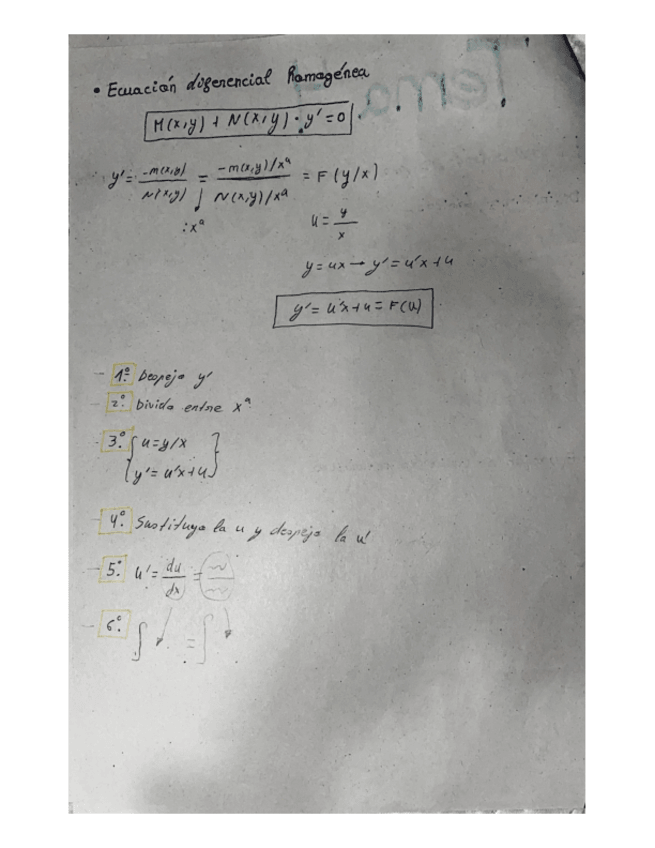 • Ecuación diferencial Homogénea
M(x,y) + N(x,y) · y' = 0
y' = -M(x,y) / N(x,y) = -M(x,y)/xª / N(x,y)/xª = F(y/x)
:xª
u = y/x
y = ux → y' = u'x + u
y' = u'x + u = F(u)
- 1º. Despejo y'
- 2º. Divido entre xª
- 3º. { u = y/x
y' = u'x + u }
- 4º. Sustituyo la u y despejo la u'
- 5º. u' = du/dx =
- 6º. ∫ = ∫
Tema